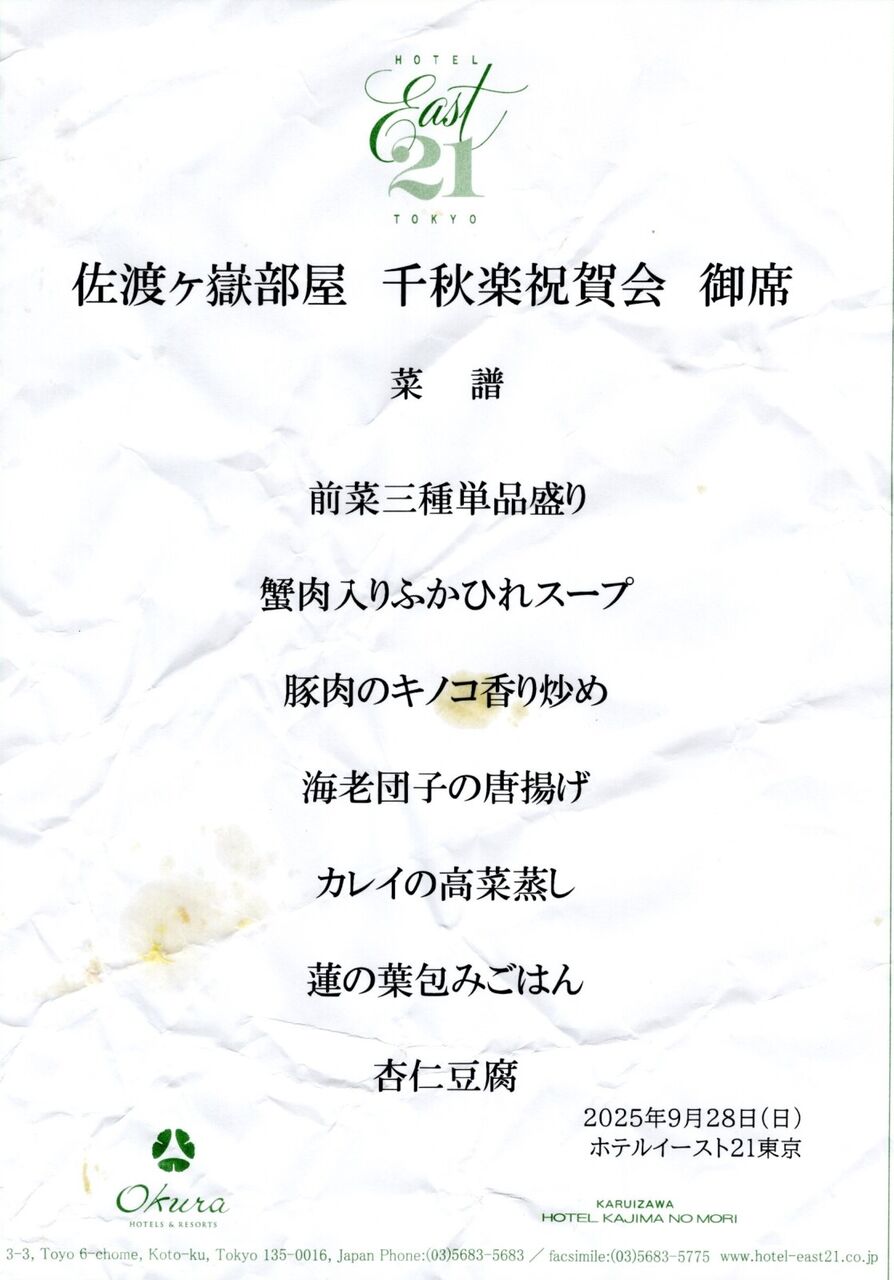 HOTEL
East
21
TOKYO
佐渡ヶ嶽部屋 千秋楽祝賀会 御席
菜 譜
前菜三種単品盛り
蟹肉入りふかひれスープ
豚肉のキノコ香り炒め
海老団子の唐揚げ
カレイの高菜蒸し
蓮の葉包みごはん
杏仁豆腐
2025年9月28日(日)
ホテルイースト21東京
Okura
HOTELS & RESORTS
KARUIZAWA
HOTEL KAJIMA NO MORI
3-3, Toyo 6-chome, Koto-ku, Tokyo 135-0016, Japan Phone:(03)5683-5683 / facsimile:(03)5683-5775 www.hotel-east21.co.jp